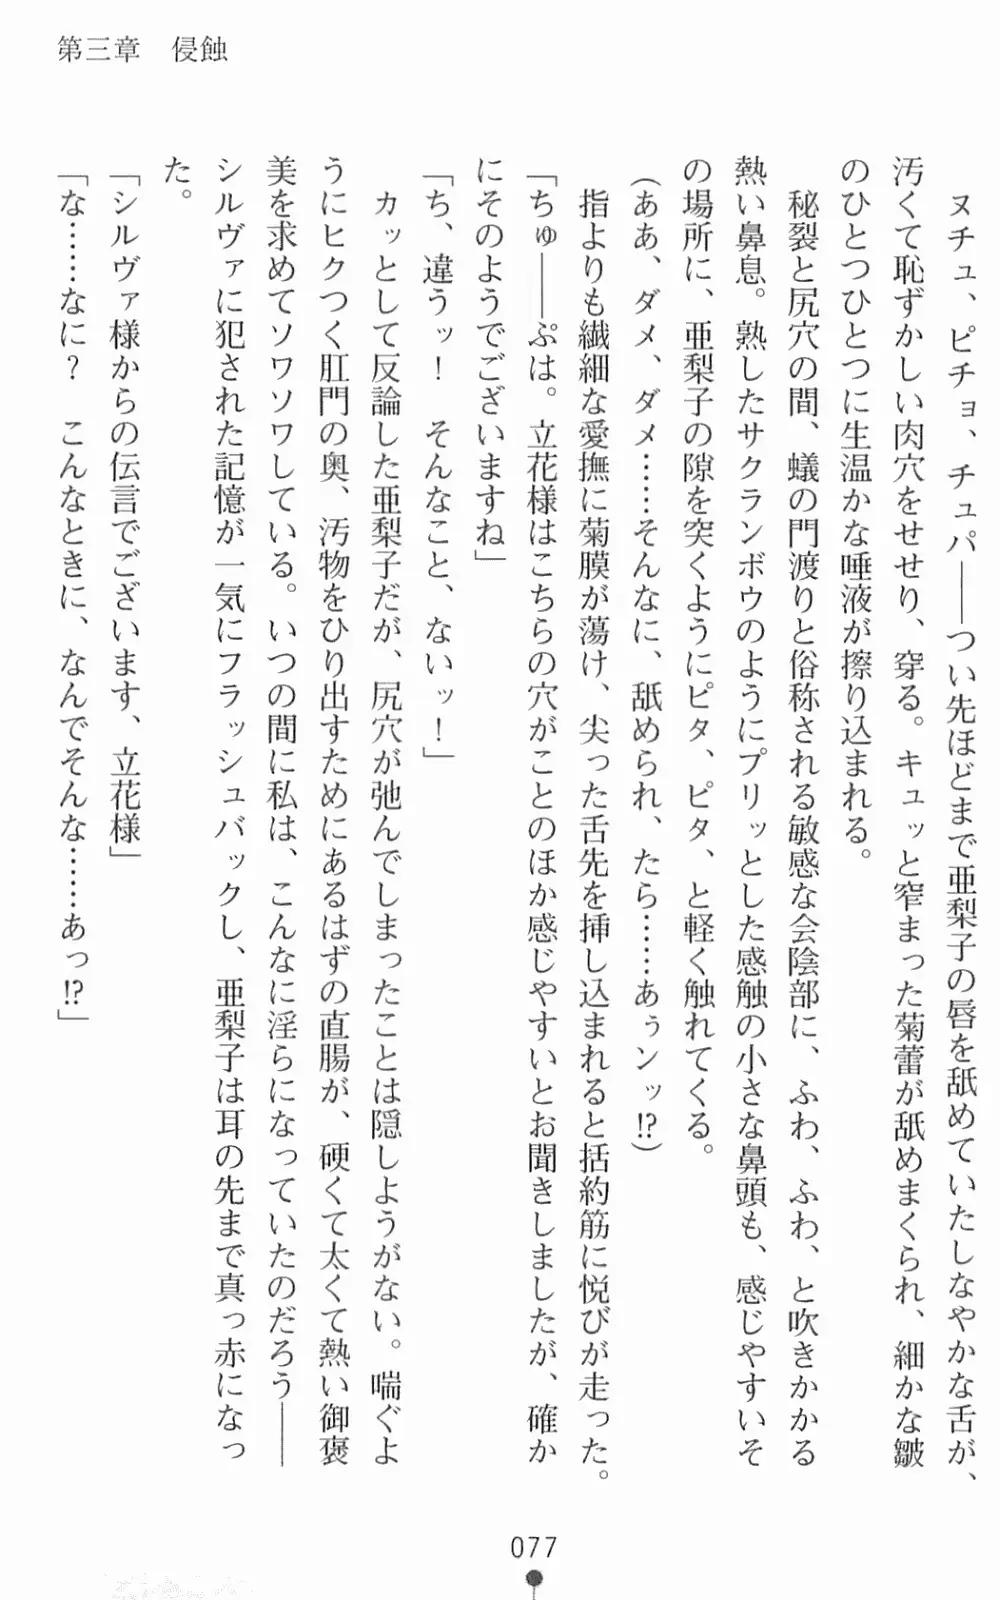 第三章　侵蝕
ヌチュ、ピチョ、チュパ――つい先ほどまで亜梨子の唇を舐めていたしなやかな舌が、
汚くて恥ずかしい肉穴をせせり、穿る。キュッと窄まった菊蕾が舐めまくられ、細かな皺
のひとつひとつに生温かな唾液が擦り込まれる。
秘裂と尻穴の間、蟻の門渡りと俗称される敏感な会陰部に、ふわ、ふわ、と吹きかかる
熱い鼻息。熟したサクランボウのようにプリッとした感触の小さな鼻頭も、感じやすいそ
の場所に、亜梨子の隙を突くようにピタ、ピタ、と軽く触れてくる。
(ああ、ダメ、ダメ……そんなに、舐められ、たら……あぅンッ!?)
指よりも繊細な愛撫に菊膜が蕩け、尖った舌先を挿し込まれると括約筋に悦びが走った。
「ちゅ――ぷは。立花様はこちらの穴がことのほか感じやすいとお聞きしましたが、確か
にそのようでございますね」
「ち、違うッ！　そんなこと、ないッ！」
カッとして反論した亜梨子だが、尻穴が弛んでしまったことは隠しようがない。喘ぐよ
うにヒクつく肛門の奥、汚物をひり出すためにあるはずの直腸が、硬くて太くて熱い御褒
美を求めてソワソワしている。いつの間に私は、こんなに淫らになっていたのだろう――
シルヴァに犯された記憶が一気にフラッシュバックし、亜梨子は耳の先まで真っ赤になっ
た。
「シルヴァ様からの伝言でございます、立花様」
「な……なに？　こんなときに、なんでそんな……あっ!?」
077